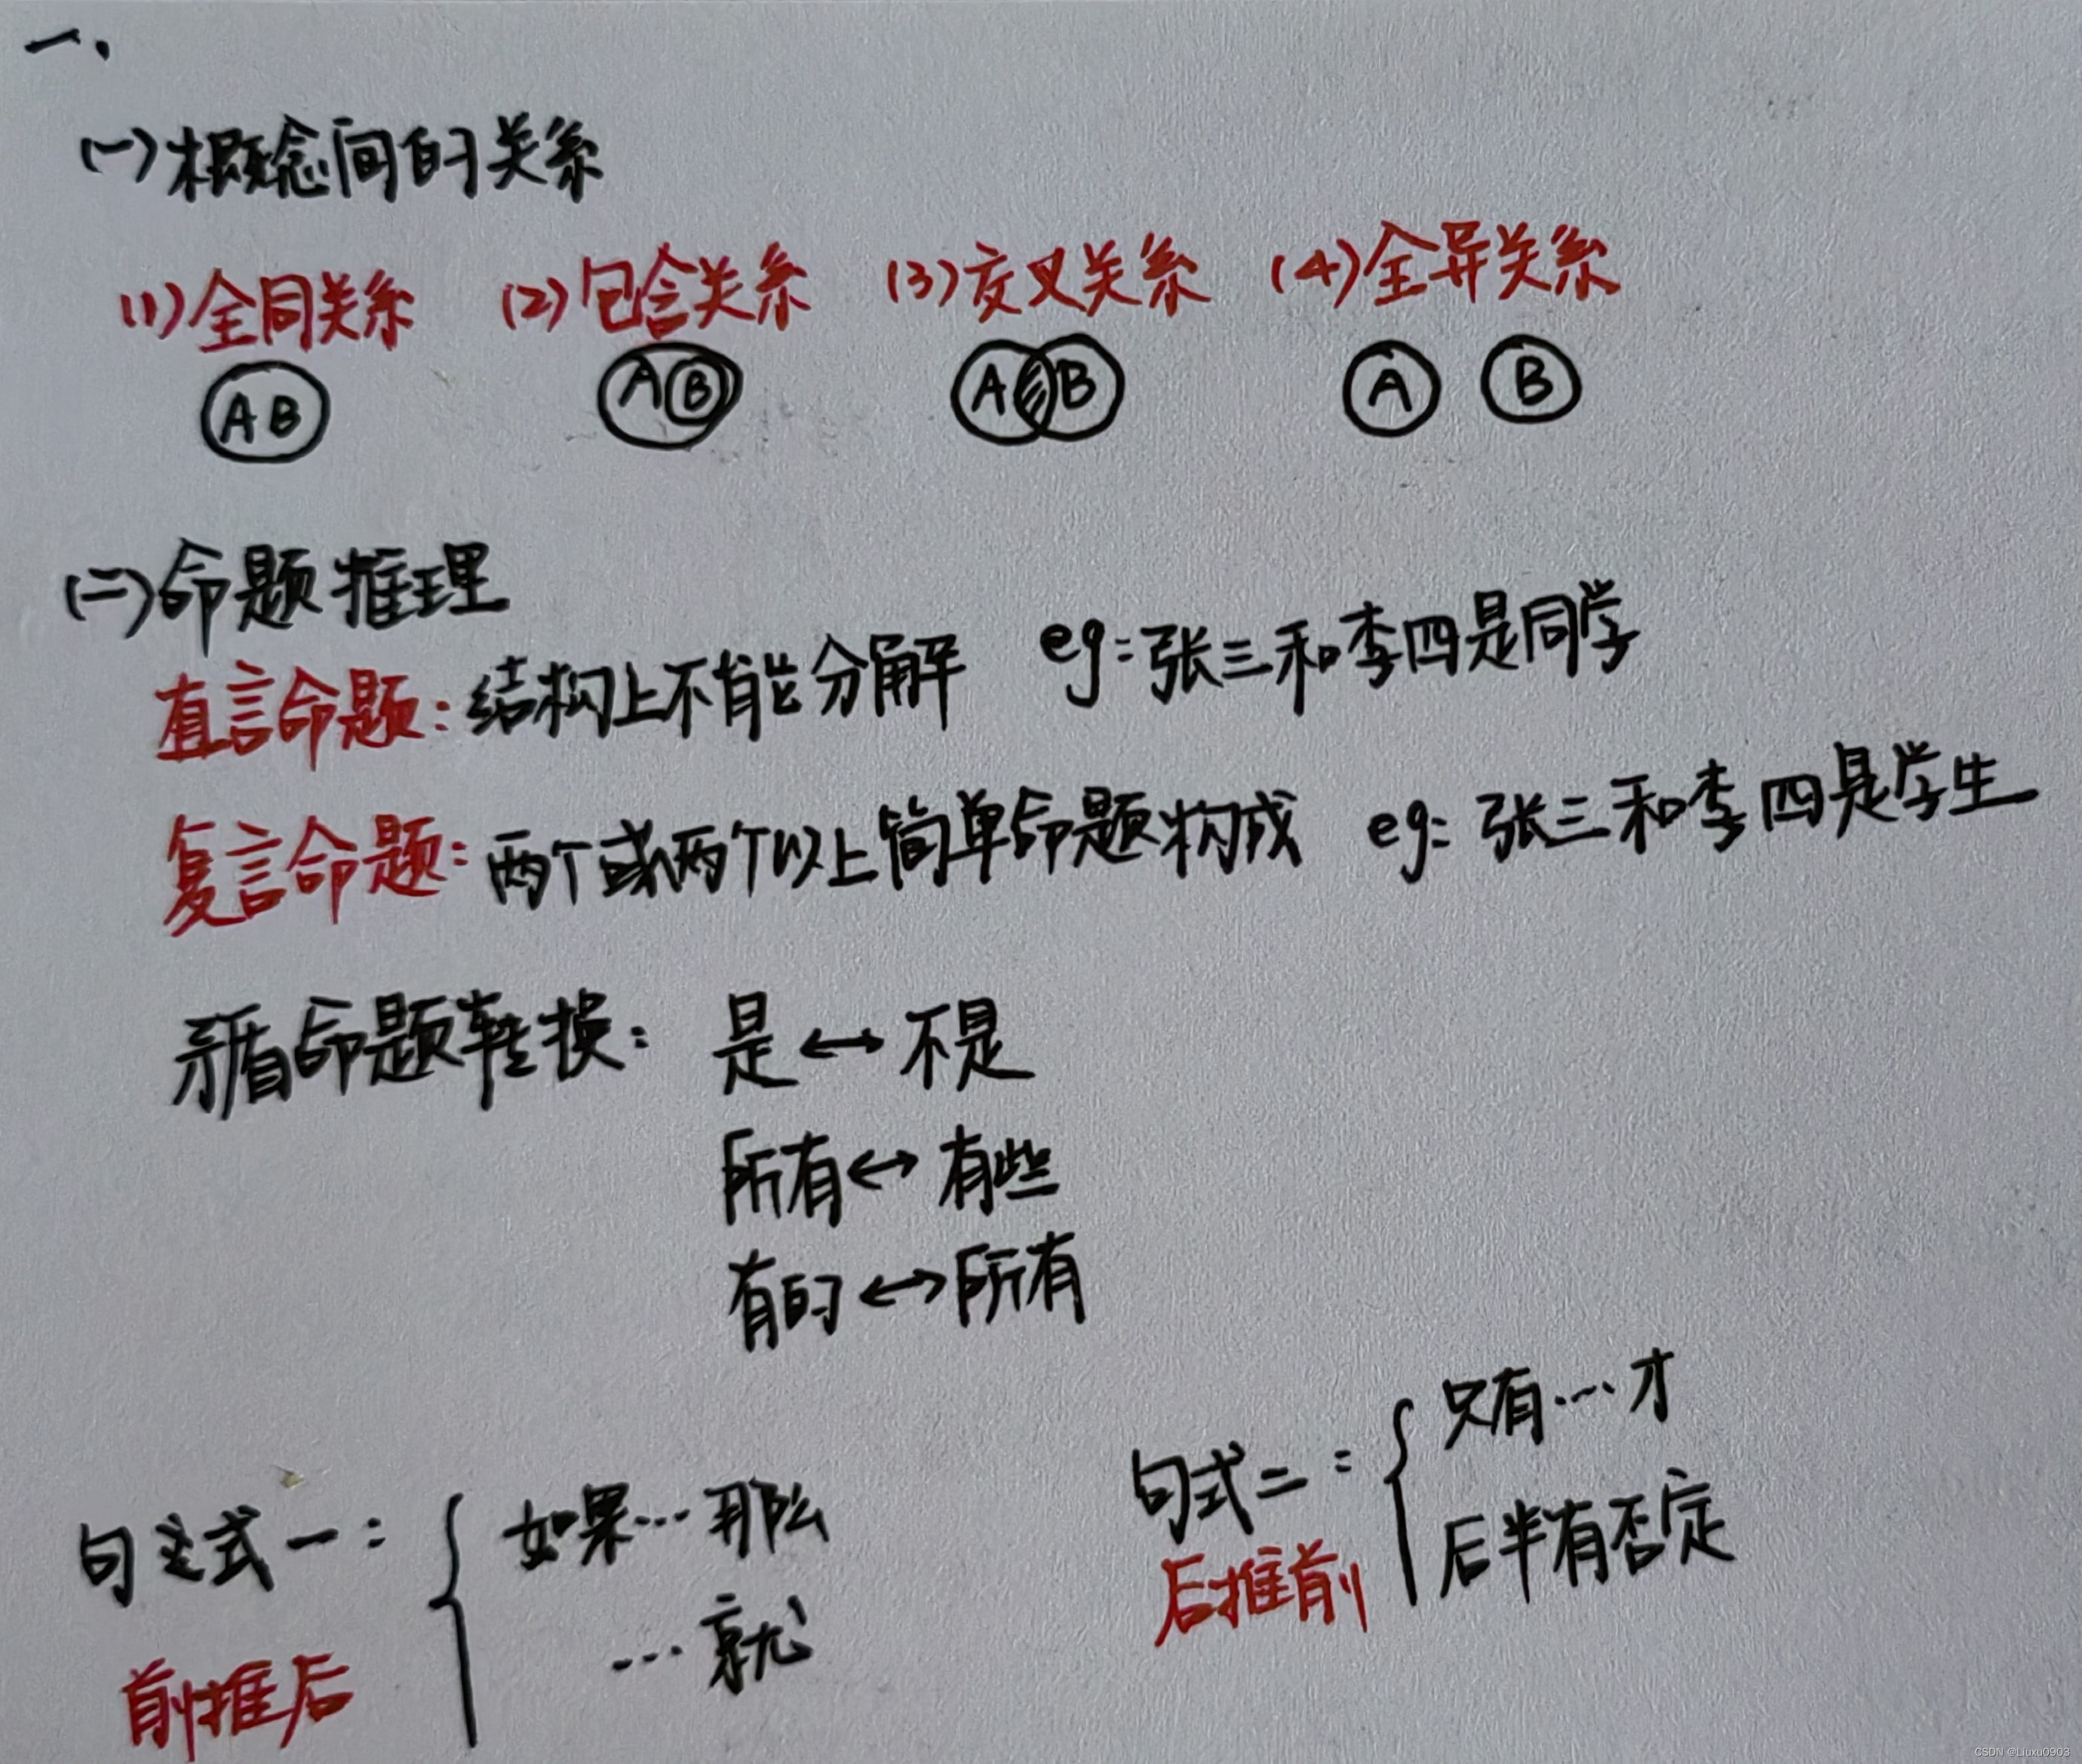 一、
(一)概念间的关系
(1)全同关系 (2)包含关系 (3)交叉关系 (4)全异关系
A B A B A B A B
(二)命题推理
直言命题：结构上不能分解 eg：张三和李四是同学
复言命题：两个或两个以上简单命题构成 eg：张三和李四是学生
矛盾命题转换：是↔不是
所有↔有些
有的↔所有
句式一：{ 如果…那么
…就
前推后
句式二：{ 只有…才
后半有否定
后推前
CSDN @Liuxu0903